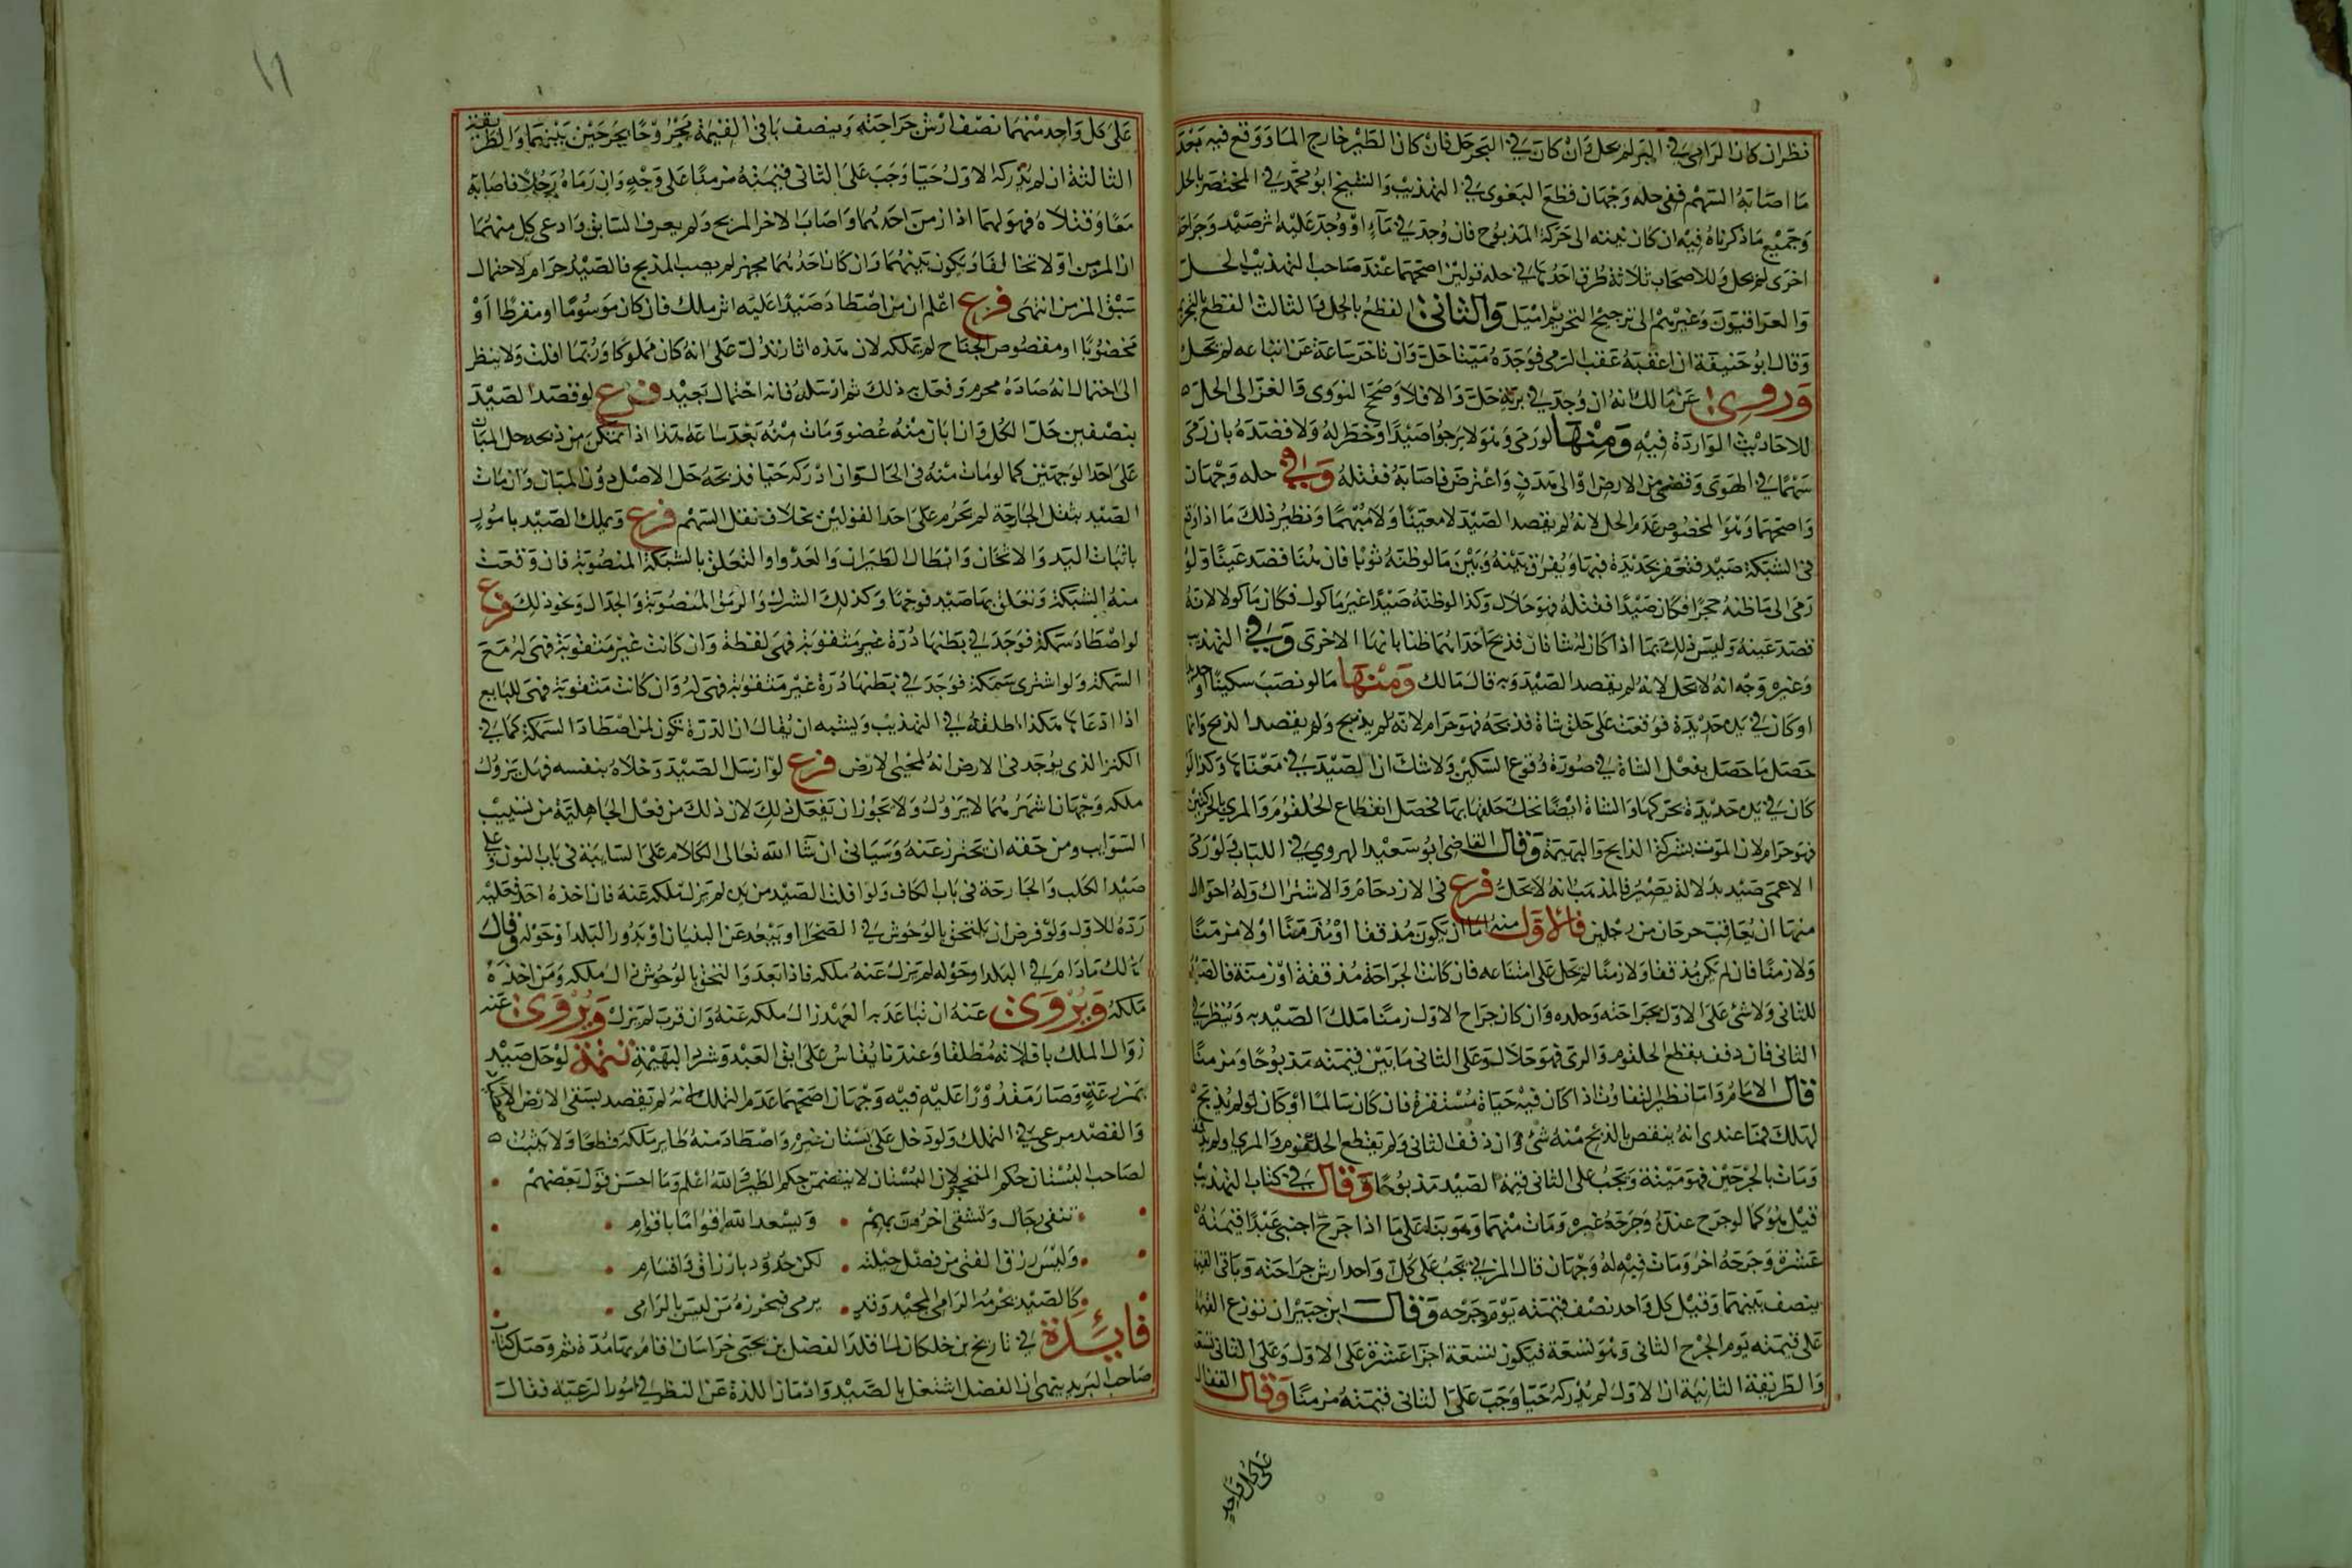 نظر ان كان الرامى فى البر لم يحل وان كان فى البحر حل فان كان الطير خارج الماء ووقع فيه بعد
ما اصابه السهم ففى حله وجهان قطع البغوى فى التهذيب والشيخ ابو محمد فى المختصر بالحل
وجميع ما ذكرناه فيه ان كان ينته الى حركة المذبوح فان وجد فى ماء او وجد عليه اثر صيد وجراحة
اخرى لم يحل وللاصحاب ثلاثة طرق احدها فى حله قولين اصحهما عند صاحب التهذيب الحل
والعراقيون وغيرهم الى ترجيح التحريم اميل والثانى القطع بالحل والثالث القطع بالتحريم
وقال ابو حنيفة ان اعقبه عقب الرمى فوجده ميتا حل وان تاخر ساعة عن اتباعه لم يحل
وروى عن مالك انه ان وجد فى برية حل والا فلا وصحح النووى والغزالى الحل
للاحاديث الواردة فيه ومنها لو رمى وهو لا يرجوا صيدا ولا خطر له ولا قصده بان رمى
سهما فى الهوى وقضى من الارض او الى هدف واعترض فاصابه فقتله وفى حله وجهان
واصحهما وهو المخصوص عدم الحل لانه لم يقصد الصيد لا معينا ولا مبهما ونظير ذلك ما اذا وقع
فى الشبكة صيد فتعقر بحديدة فيها ويفرق بينه وبين ما لو ظنه ثوبا فان هنا قصد عينا ولو
رمى الى ما ظنه حجرا فكان صيدا فقتله فهو حلال وكذا لو ظنه صيدا غير ماكول فكان ماكولا لانه
قصد عينه وليس ذلك بما اذا كان له شاتان فذبح احداهما ظنا بانها الاخرى وفى التهذيب
وغيره وجه انه لا يحل لانه لم يقصد الصيد وبه قال مالك ومنها ما لو نصب سكينا او حديدة
او كان فى يده حديدة فوقعت على حلق شاة فذبحه فهو حرام لانه لم يذبح ولم يقصد الذبح وانما
حصل ما حصل بفعل الشاة فى صورة وقوع السكين ولا شك ان الصيد فى معناها وكذا لو
كان فى يده حديدة يحركها والشاة ايضا تحك حلقها بها فحصل انقطاع الحلقوم والمرى بالحركتين
فهو حرام لان الموت بشركة الذابح والبهيمة وقال القاضى ابو سعيد الهروى فى اللباب ولو رمى
الاعمى صيد بدلالة بصير فالمذهب انه لا يحل فرع فى الازدحام والاشتراك وله احوال
منها ان يتعاقب جرحان من رجلين فالاول منه اما ان يكون مذففا او مزمنا او لا مزمنا
ولا زمنا فان لم يكن مذففا ولا زمنا لم يحل على امتناعه فان كانت الجراحة مذففة او زمنة فالصيد
للثانى ولا شئ على الاول بجراحته وحلده وان كان جراح الاول زمنا ملك الصيد به وينظر فى
الثانى فان ذفف بقطع الحلقوم والمرى فهو حلال وعلى الثانى ما بين قيمته مذبوحا ومزمنا
قال الامام وامما نظير التفاوت اذا كان فيه حياة مستقرة فان كان سالما او كان لو لم يذبح
لهلك فما عندى انه ينقص بالذبح منه شئ وان ذفف الثانى ولم يقطع الحلقوم والمرى او لم يذفف
ومات بالجرحين فهو ميتة ويجب على الثانى قيمة الصيد مذبوحا وقال فى كتاب التهذيب
قيل هو كما لو جرح عنده وجرحه غيره ومات منهما وهو بناء على ما اذا جرح اجنبى عبدا قيمته
عشرة وجرحه اخر ومات فيه له وجهان قال المزنى يجب على كل واحد ارش جراحته وباقى القيمة
ينصف بينهما وقيل كل واحد نصف قيمته يوم جرحه وقال ابن جبير ان نوزع القيمة
على قيمته يوم الجرح الثانى وهو تسعة فيكون تسعة اجزا عشرة على الاول وعلى الثانى تسعة
والطريقة الثانية ان الاول لم يدركه حيا وجب على الثانى قيمته مزمنا وقال القفال
على كل واحد
١٦
على كل واحد منهما نصف ارش جراحته وينصف باقى القيمة مجروحا بجرحين بينهما والطريقة
الثالثة ان لم يدركه الاول حيا وجب على الثانى قيمته مزمنا على وجه وان رماه رجلا فاصابه
معا وقتلاه فهو لهما اذا زمن احدهما واصاب الاخر المذبح ولم يعرف السابق وادعى كل منهما
ان المزمن اولا تحالفا ويكون بينهما وان كان احدهما مجهز لم يصب المذبح فالصيد حرام لاحتمال
سبق المزمن انتهى فرع اعلم ان من اصطاد صيدا عليه اثر ملك فان كان موسوما او مقرطا او
مخضوبا او مقصوص الجناح لم يملكه لان هذه اثار تدل على انه كان مملوكا وربما افلت ولا ينظر
الى احتمال انه صاده محرم وفعل به ذلك ثم ارسله فانه احتمال بعيد فرع لو قصد الصيد
بنصفين حل الكل وان ابان منه عضو ومات منه بعد ساعة هذا اذا تمكن من ذبحه حل المبان
على احد الوجهين كما لو مات منه فى الحال وان ادركه حيا فذبحه حل الاصل دون المبان وان مات
الصيد بثقل الجارحة لم يحرم على احد القولين بخلاف ثقل السهم فرع ويملك الصيد بامور
باثبات اليد والاثخان وابطال الطيران والعدو او التعلق بالشبكة المنصوبة فان وقعت
منه الشبكة وتعلق بها صيد فوجها وكذلك الشرك والرمق المنصوبة والحبال ونحو ذلك فرع
لو اصطاد سمكة فوجد فى بطنها درة غير مثقوبة فهى لقطة وان كانت غير مثقوبة فهى له مع
السمكة ولو اشترى سمكة فوجد فى بطنها درة غير مثقوبة فهى له وان كانت مثقوبة فهى للبايع
اذا ادعاها هكذا اطلقه فى التهذيب ويشبه ان يقال ان الدرة تكون لمن اصطاد السمكة كما فى
الكنز الذى يوجد فى الارض انه لمحيى الارض فرع لو ارسل الصيد وخلاه بنفسه فهل يزول
ملكه وجهان اشهرهما لا يزول ولا يجوز ان يفعل ذلك لان ذلك من فعل الجاهلية من تسييب
السوايب ومن حقه ان يحترز عنه وسياتى ان شا الله تعالى الكلام على السايبة فى باب النون وعلى
صيد الكلب والجارحة فى باب الكاف ولو افلت الصيد من يده لم يزل ملكه عنه فان اخذه احد فعليه
رده للاول ولو فرض ان يلتحق بالوحوش فى الصحرا او يبعد عن البنيان او يدور البلد او حوله وقال
مالك ما دام فى البلد او حوله لم يزل عنه ملكه فاذا بعد والتحق بالوحوش زال ملكه ومن اخذه
ملكه ويروى عنه ان تباعد به العهد زال ملكه عنه وان قرب لم يزل ويروى عنه
زوال الملك بافلاته مطلقا وعندنا يقاس على ابق العبد وشرد البهيمة تتمة لو حل صيد
بمزرعة وصار مقدورا عليه ففيه وجهان اصحهما عدم التملك لانه لم يقصد بسقى الارض
والقصد مرعى فى التملك ولو دخل على بستان غيره واصطاد منه طاير ملكه قطعا ولا يثبت
لصاحب البستان حكم المتحجر لان البستان لا يتضمن حكم الطير والله اعلم وما احسن قول بعضهم
تشقى رجال ويشقى اخرون بهم ٠ ويسعد الله اقواما باقوام
وليس رزق الفتى من فضل حيلته ٠ لكن جدود بارزاق واقسام
كالصيد يحرمه الرامى المجيد وقد ٠ يرمى فيحرزه من ليس بالرامى
فائدة فى تاريخ بن خلكان لما قلد الفضل بن يحيى خراسان اقام بها مدة ثم وصل كتاب
صاحب البريد ينهى ان الفضل اشتغل بالصيد وادمان اللذة عن النظر فى امور الرعية فقال